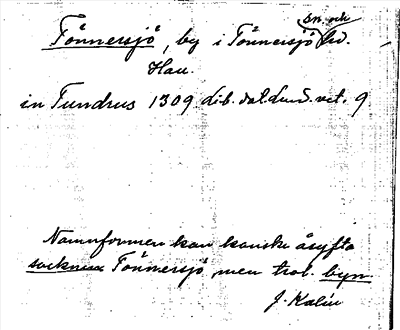 Tönnersjö, by i Tönnersjö sn. och hd.
Hall.
in Tundrus 1309. Lib. dat. Lund. vet. 9
Namnformen kan kanske åsyfta
socknen Tönnersjö, men trol. byn.
J. Kalén